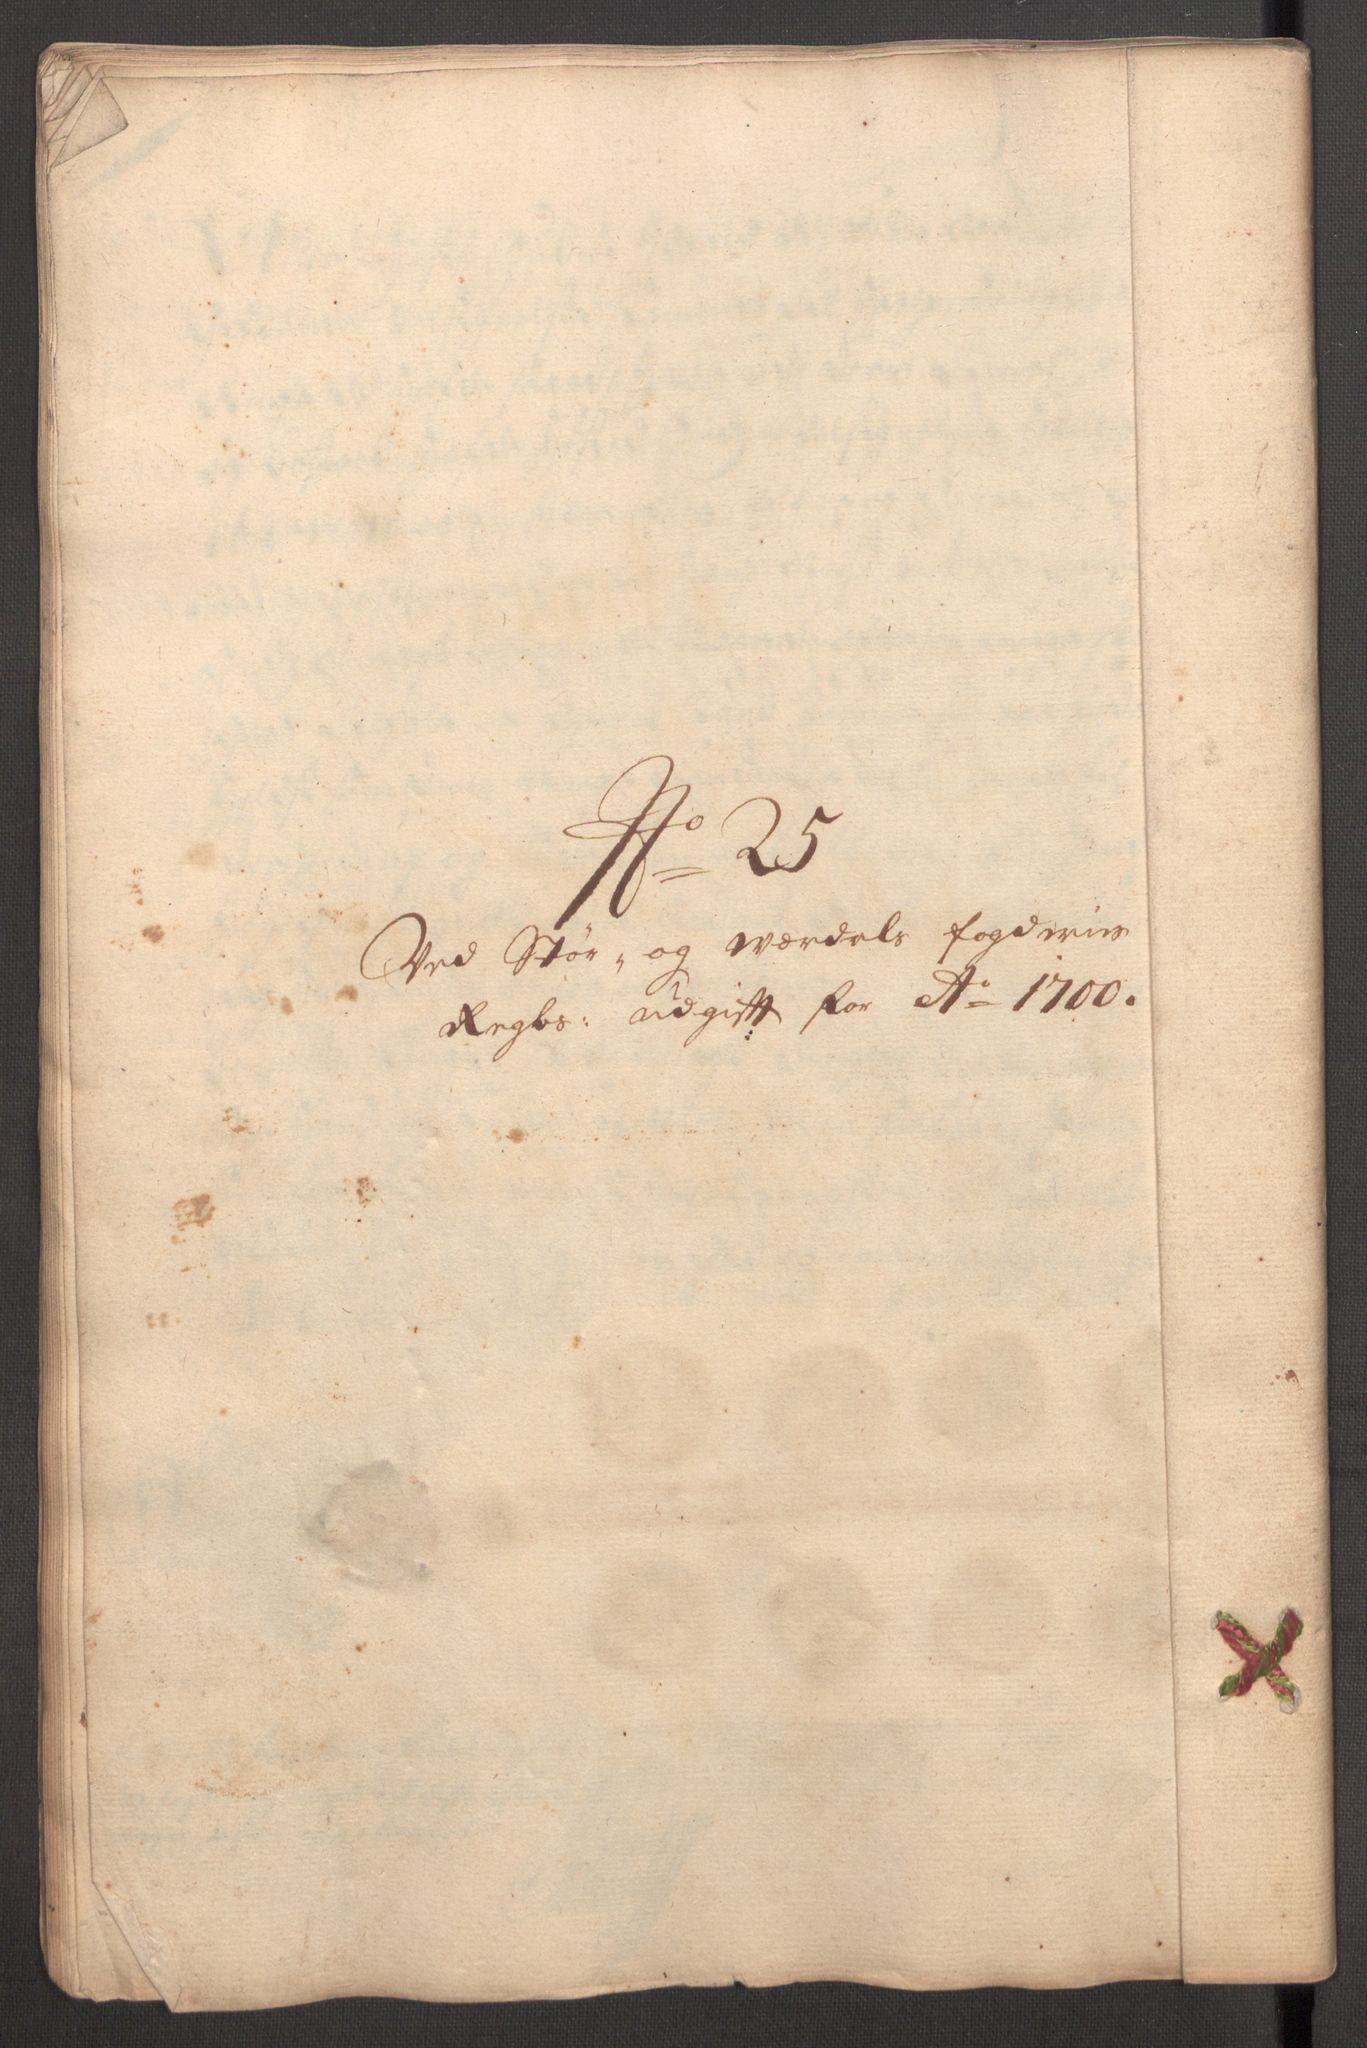 No 25
Ved Stør- og Wærdals fogderies
Regbs: udgifft for Ao 1700.